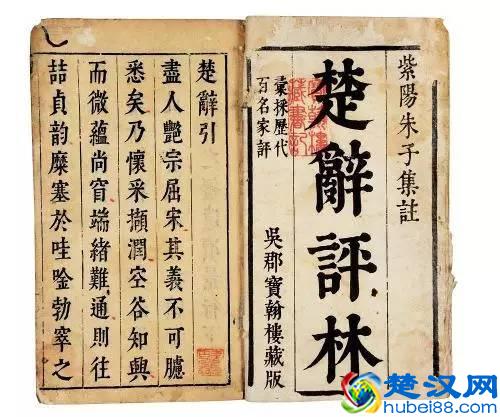 紫陽朱子集註
楚辭評林
彙採歷代
百名家評
吳郡寶翰樓藏版
楚辭引
盡人艷宗屈宋其義不可臆
悉矣乃懷采擷潤空谷知興
而微蘊尚窅端緒難通則往
喆貞韵糜塞於哇唫勃窣之
楚汉网
hubei88.com